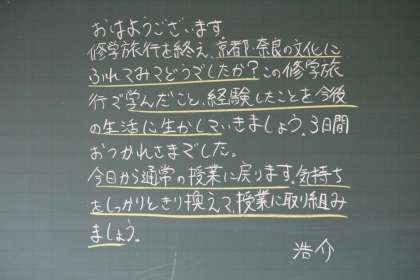 おはようございます。
修学旅行を終え、京都・奈良の文化に
ふれてみてどうでしたか？この修学旅
行で学んだこと、経験したことを今後
の生活に生かしていきましょう。3日間
おつかれさまでした。
今日から通常の授業に戻ります。気持ち
をしっかりときり換えて、授業に取り組み
ましょう。
浩介